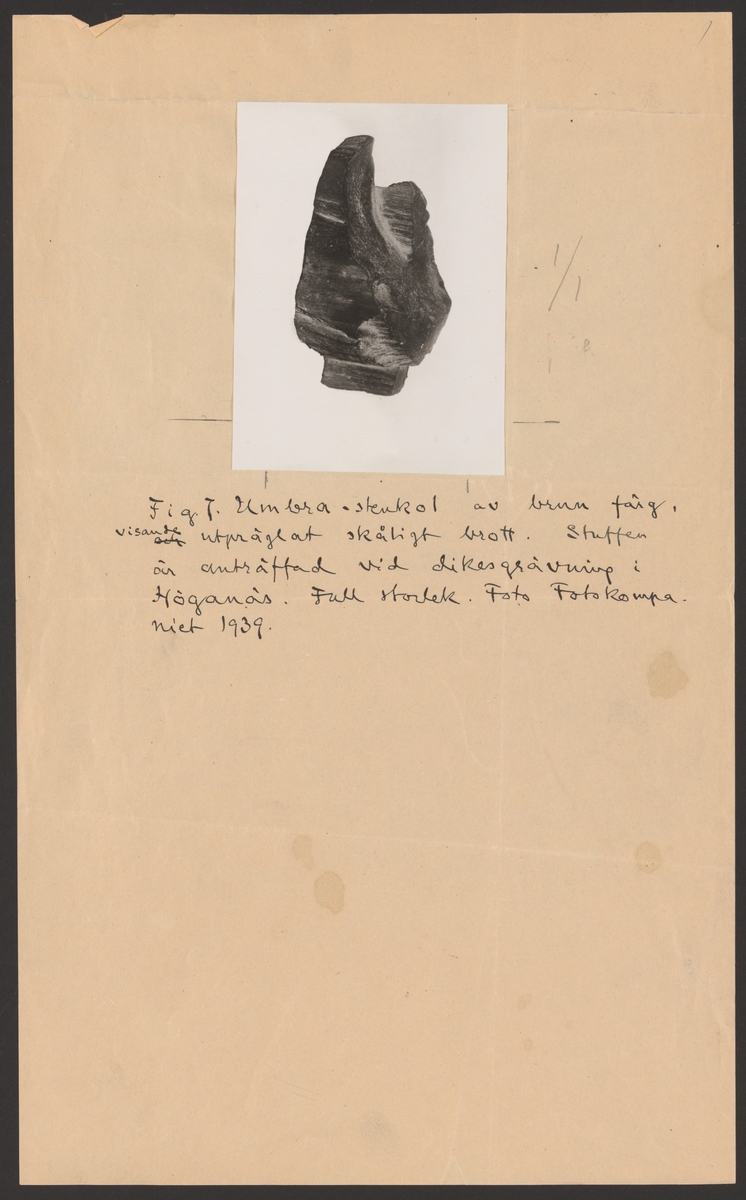 1/1
Fig. 7. Umbra-stenkol av brun färg,
visande utpräglat skåligt brott. Stuffen
är anträffad vid dikesgrävning i
Höganäs. Full storlek. Foto Fotokompa-
niet 1939.